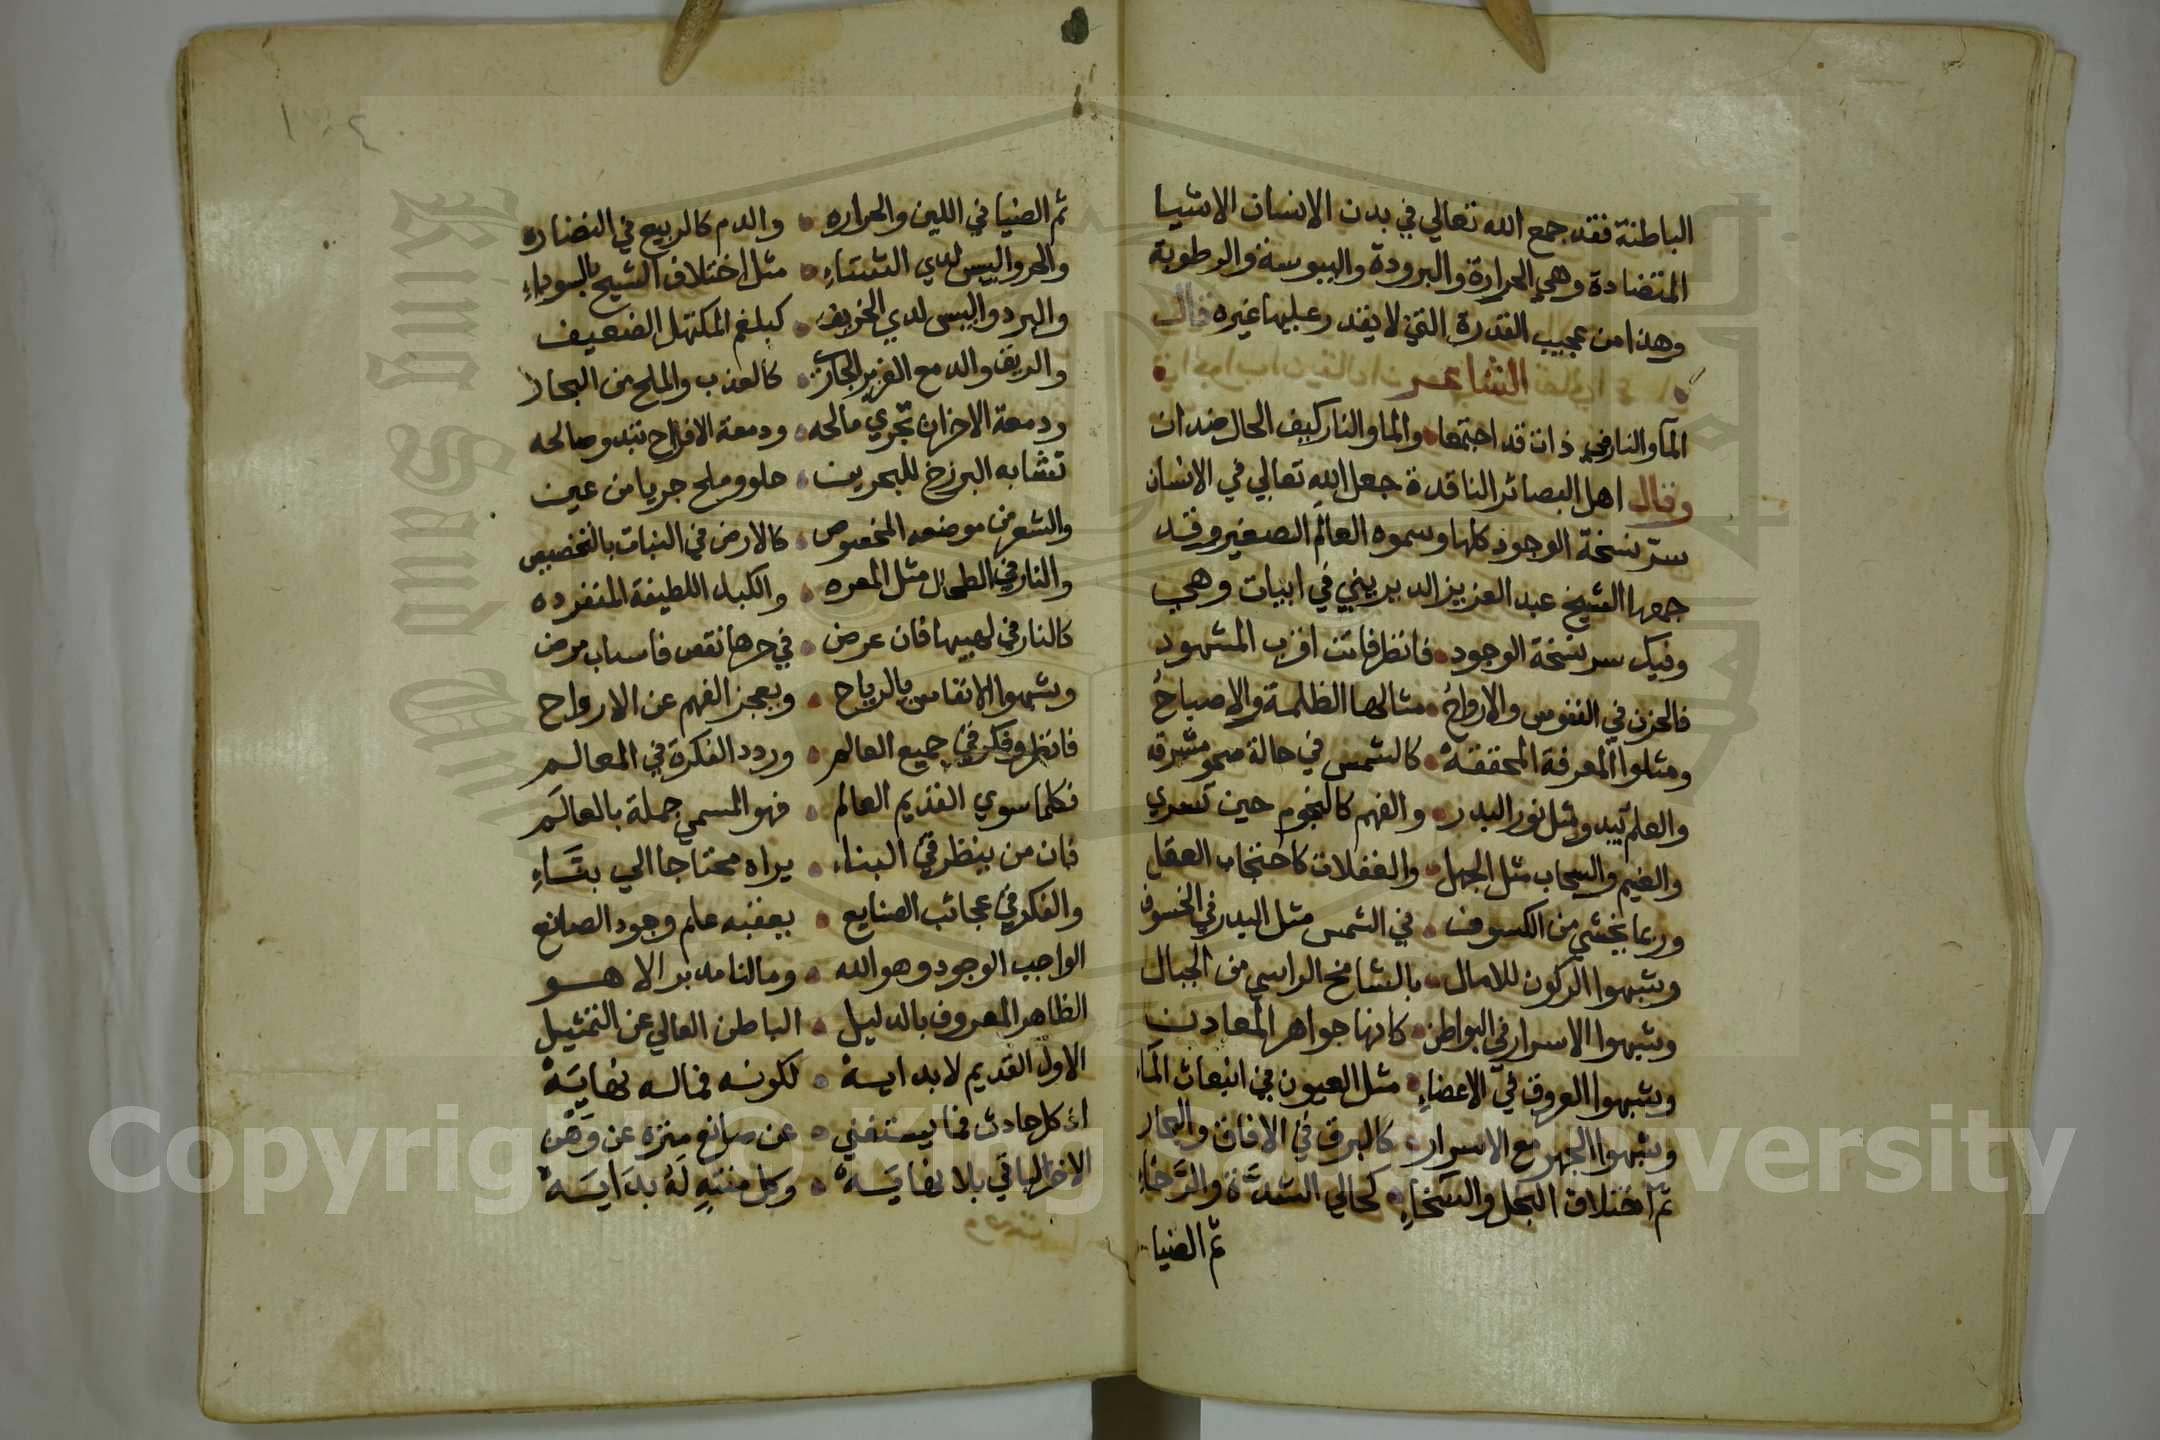 الباطنة فقد جمع الله تعالي في بدن الانسان الاشيا
المتضادة وهي الحرارة والبرودة واليبوسة والرطوبة
وهذا من عجيب القدرة التي لا يقدر عليها غيره قال
الشاعر
المآ والنار في ذات قد اجتمعا والما والنار كيف الحال ضدان
وقال اهل البصائر الناقدة جعل الله تعالي في الانسان
سرّ نسخة الوجود كلها وسموه العالم الصغير وقد
جمعها الشيخ عبد العزيز الديريني في ابيات وهي
وفيك سر نسخة الوجود فانظر فانت اقرب المشهود
فالحزن في النفوس والارواحُ مثالها الظلمة والاصباحُ
ومثلوا المعرفة المحققهْ كالشمس في حالة صحو مشرقه
والعلم يبدو مثل نور البدر والفهم كالنجوم حين تسري
والغيم والسحاب مثل الجهل والغفلات كاحتجاب العقل
وربما يخشي من الكسوف في الشمس مثل البدر في الخسوف
وشبهوا الركون للامال بالشامخ الراسي من الجبال
وشبهوا الاسرار في البواطن كانها جواهر المعادن
وشبهوا العروق في الاعضاءِ مثل العيون في انبعاث المآء
وشبهوا الجهر مع الاسرار كالبرق في الافاق والبحار
ثم اختلاف البخل والسخاءِ كحالي الشدَّة والرَّخاءِ
ثم الضيا
ثم الضيا في اللين والحراره والدم كالربيع في النضاره
والحر واليبس لدي الشتاءِ مثل اختلاف الشيخ بالسوداءِ
والبرد واليبس لدي الخريف كبلغم المكتهل الضعيف
والريق والدمع الغزير الجاري كالعذب والملح من البحار
ودمعة الاحزان تجري مالحه ودمعة الافراح تبدو صالحه
تشابه البرزخ للبحرين حلو وملح جريا من عين
والشعر من موضعه المخصوص كالارض في النبات بالتخصيص
والنار في الطحال مثل المعره والكبد اللطيفة المنفرده
كالنار في لهيبها فان عرض في حرها نقص فاسباب مرض
وشبهوا الانفاس بالرياح ويعجز الفهم عن الارواح
فانظر وفكر في جميع العالم وردد الفكرة في المعالم
فكلما سوي القديم العالم فهو المسمي جملة بالعالَم
فان من ينظر في البناء يراه محتاجا الي بنَّاءِ
والفكر في عجائب الصنايع يعقبه علم وجود الصانع
الواجب الوجود وهو الله وما لنا مدبر الا هو
الظاهر المعروف بالدليل الباطن العالي عن التمثيل
الاول القديم لا بدايهْ لكونه فما له نهايَهْ
اذ كل حادث فما يستغني عن صانع منزه عن وَهْنِ
الاخر الباقي بلا نهايَهْ وكل منتهٍ لَهُ بدَايَهْ
Copyright © King Saud University
King Saud University